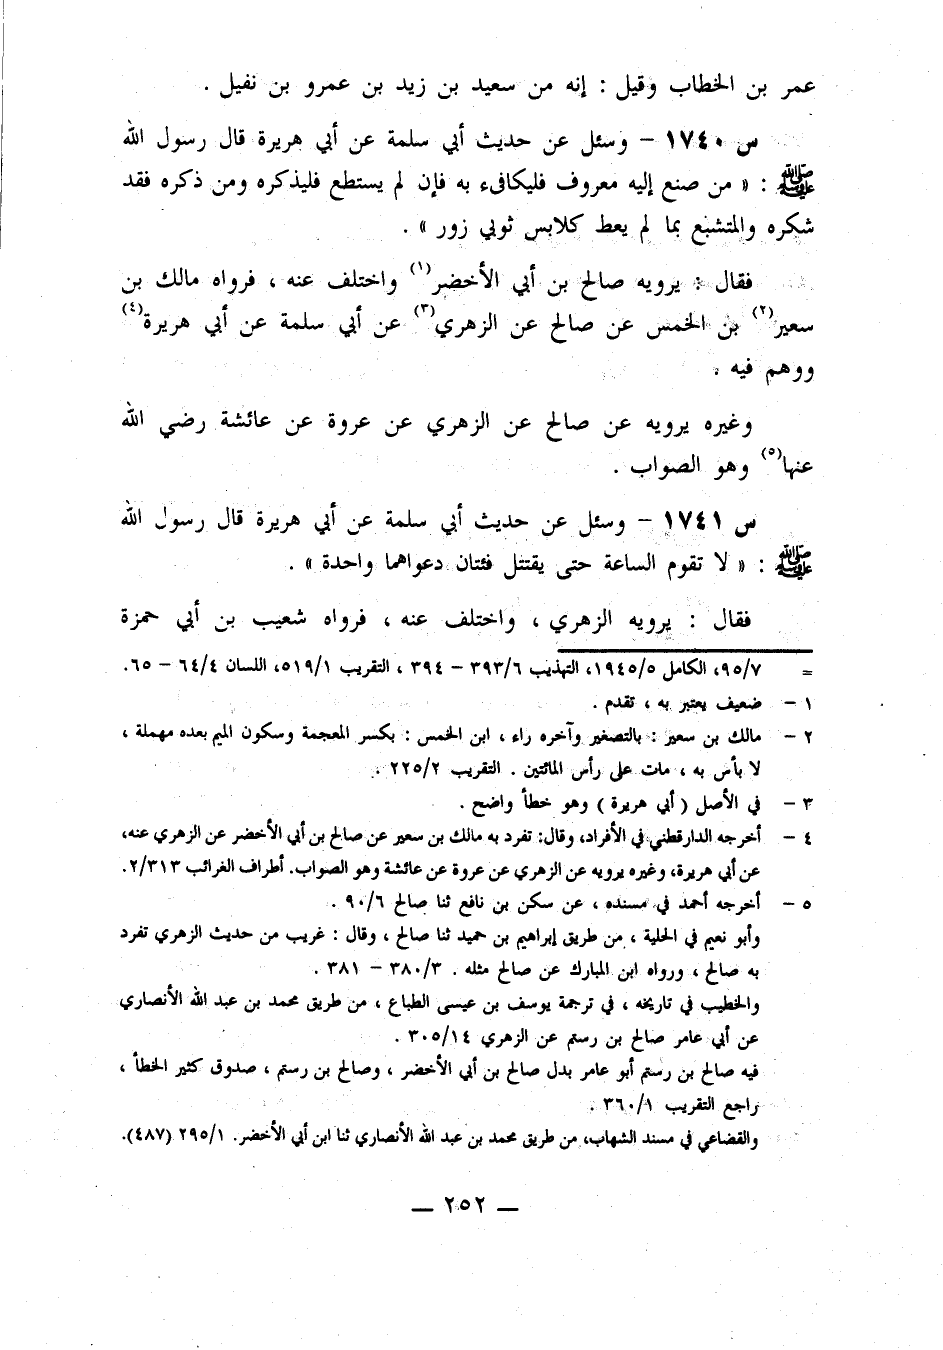 عمر بن الخطاب وقيل : إنه من سعيد بن زيد بن عمرو بن نفيل .
س ١٧٤٠ – وسئل عن حديث أبي سلمة عن أبي هريرة قال رسول الله
ﷺ : « من صنع إليه معروف فليكافىء به فإن لم يستطع فليذكره ومن ذكره فقد
شكره والمتشبع بما لم يعط كلابس ثوبي زور » .
فقال : يرويه صالح بن أبي الأخضر(١) واختلف عنه ، فرواه مالك بن
سعير(٢) بن الخمس عن صالح عن الزهري(٣) عن أبي سلمة عن أبي هريرة(٤)
ووهم فيه .
وغيره يرويه عن صالح عن الزهري عن عروة عن عائشة رضي الله
عنها(٥) وهو الصواب .
س ١٧٤١ – وسئل عن حديث أبي سلمة عن أبي هريرة قال رسول الله
ﷺ : « لا تقوم الساعة حتى يقتتل فئتان دعواهما واحدة » .
فقال : يرويه الزهري ، واختلف عنه ، فرواه شعيب بن أبي حمزة
= ٩٥/٧، الكامل ١٩٤٥/٥، التهذيب ٣٩٣/٦ – ٣٩٤ ، التقريب ٥١٩/١، اللسان ٦٤/٤ – ٦٥.
١ – ضعيف يعتبر به ، تقدم .
٢ – مالك بن سعير : بالتصغير وآخره راء ، ابن الخمس : بكسر المعجمة وسكون الميم بعده مهملة ،
لا بأس به ، مات على رأس المائتين . التقريب ٢٢٥/٢ .
٣ – في الأصل ( أبي هريرة ) وهو خطأ واضح .
٤ – أخرجه الدارقطني في الأفراد، وقال: تفرد به مالك بن سعير عن صالح بن أبي الأخضر عن الزهري عنه،
عن أبي هريرة، وغيره يرويه عن الزهري عن عروة عن عائشة وهو الصواب. أطراف الغرائب ٢/٣١٣.
٥ – أخرجه أحمد في مسنده ، عن سكن بن نافع ثنا صالح ٩٠/٦ .
وأبو نعيم في الحلية ، من طريق إبراهيم بن حميد ثنا صالح ، وقال : غريب من حديث الزهري تفرد
به صالح ، ورواه ابن المبارك عن صالح مثله . ٣٨٠/٣ – ٣٨١ .
والخطيب في تاريخه ، في ترجمة يوسف بن عيسى الطباع ، من طريق محمد بن عبد الله الأنصاري
عن أبي عامر صالح بن رستم عن الزهري ٣٠٥/١٤ .
فيه صالح بن رستم أبو عامر بدل صالح بن أبي الأخضر ، وصالح بن رستم ، صدوق كثير الخطأ ،
راجع التقريب ٣٦٠/١ .
والقضاعي في مسند الشهاب، من طريق محمد بن عبد الله الأنصاري ثنا ابن أبي الأخضر. ٢٩٥/١ (٤٨٧).
— ٢٥٢ —